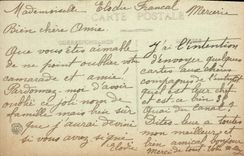 Mademoiselle Elodie Francal Mercerie
CARTE POSTALE
Bien chère Amie.
Que vous êtes aimable
de ne point oublier votre
camarade et amie!
Pardonnez-moi d'avoir
oublié ce joli nom de
famille mais bien sur
que j'aurai deviné
si vous avez signé
Elodie
J'ai l'intention
d'envoyer quelques
cartes
compagnes de
est ce bien
Quai du Canal 9
Dites leur a toutes
mon meilleur et
bien amical bonjour
Merci de tout